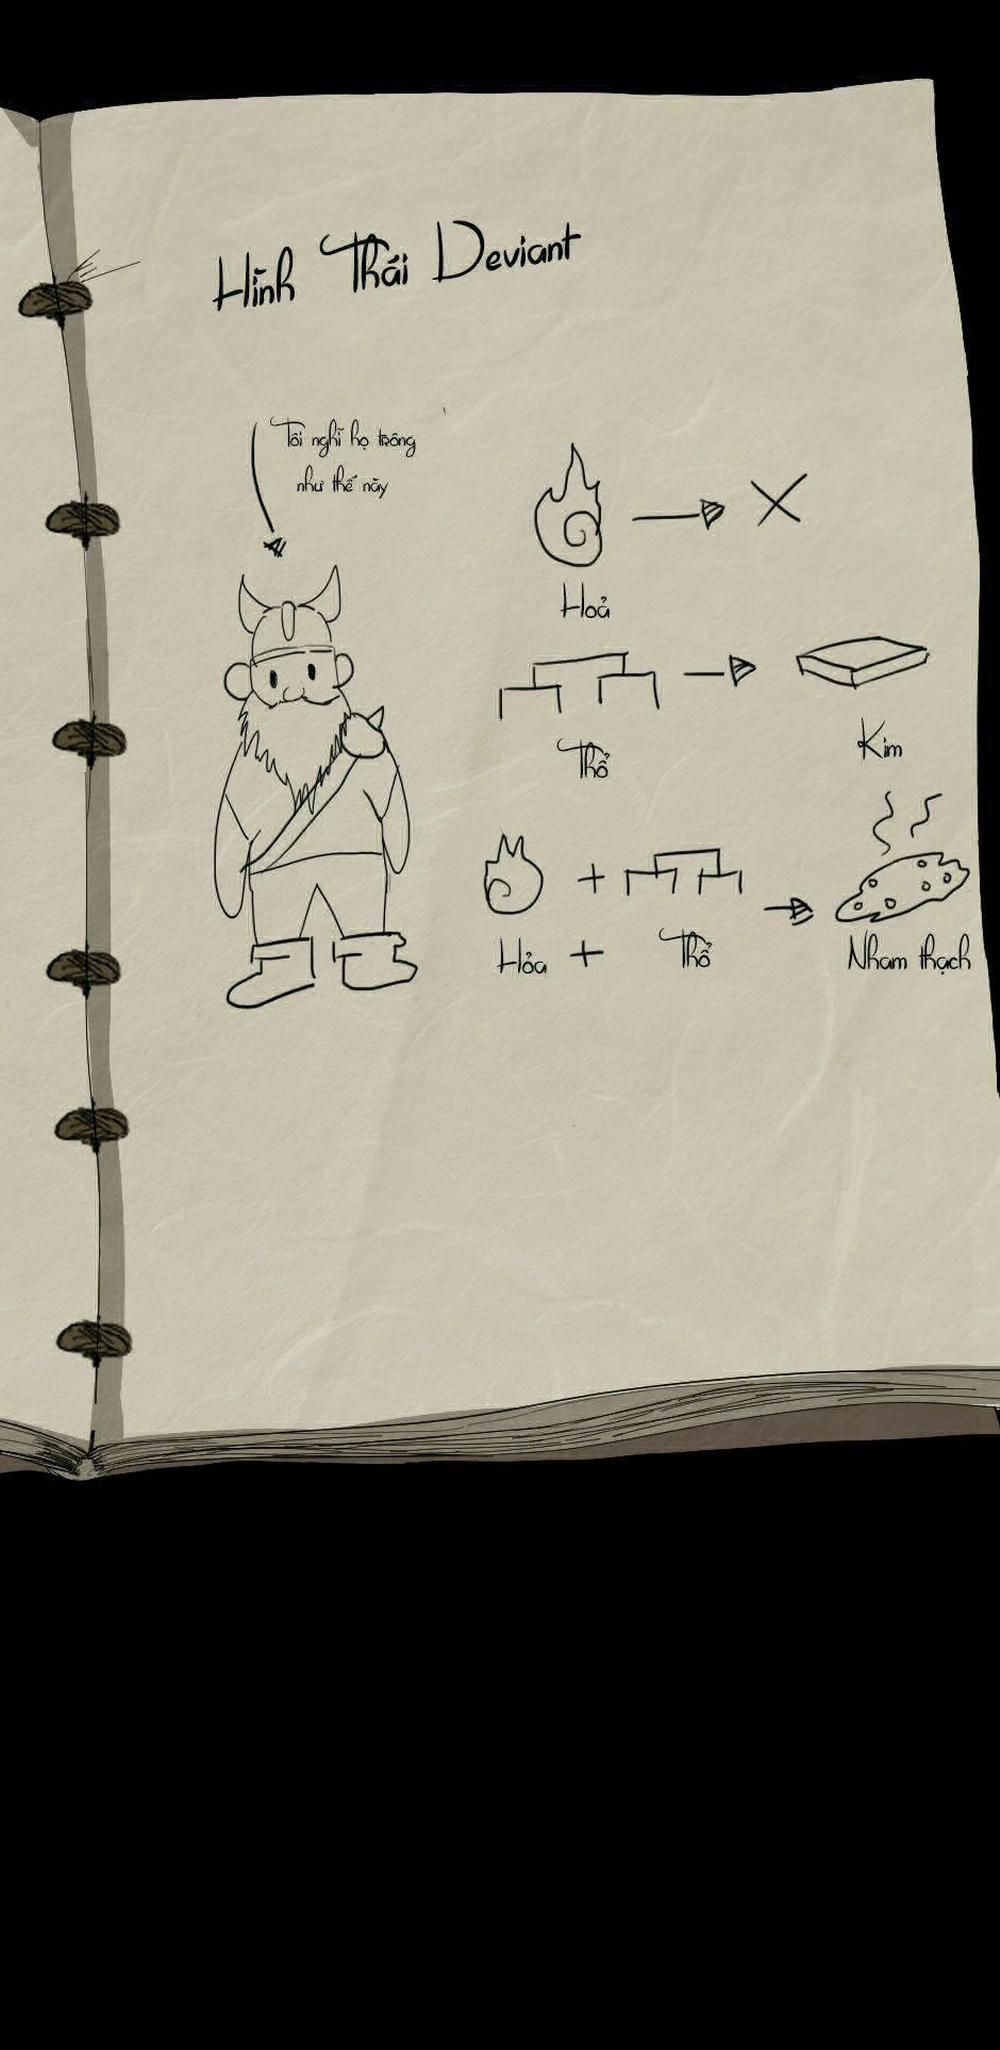 Hình Thái Deviant
Tôi nghĩ họ trông
như thế này
Hoả
Thổ
Kim
Hỏa + Thổ
Nham thạch